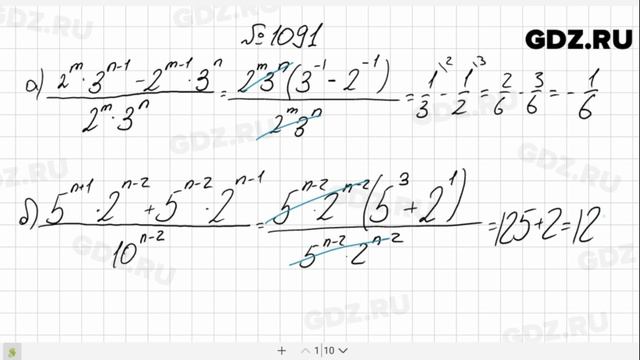 №1091
GDZ.RU
а) (2^m · 3^(n-1) - 2^(m-1) · 3^n) / (2^m · 3^n) = 2^m 3^n (3^-1 - 2^-1) / (2^m · 3^n) = 1\2/3 - 1\3/2 = 2/6 - 3/6 = - 1/6
б) (5^(n+1) · 2^(n-2) + 5^(n-2) · 2^(n-1)) / 10^(n-2) = 5^(n-2) · 2^(n-2) (5^3 + 2^1) / (5^(n-2) · 2^(n-2)) = 125+2=12
+ 1|10